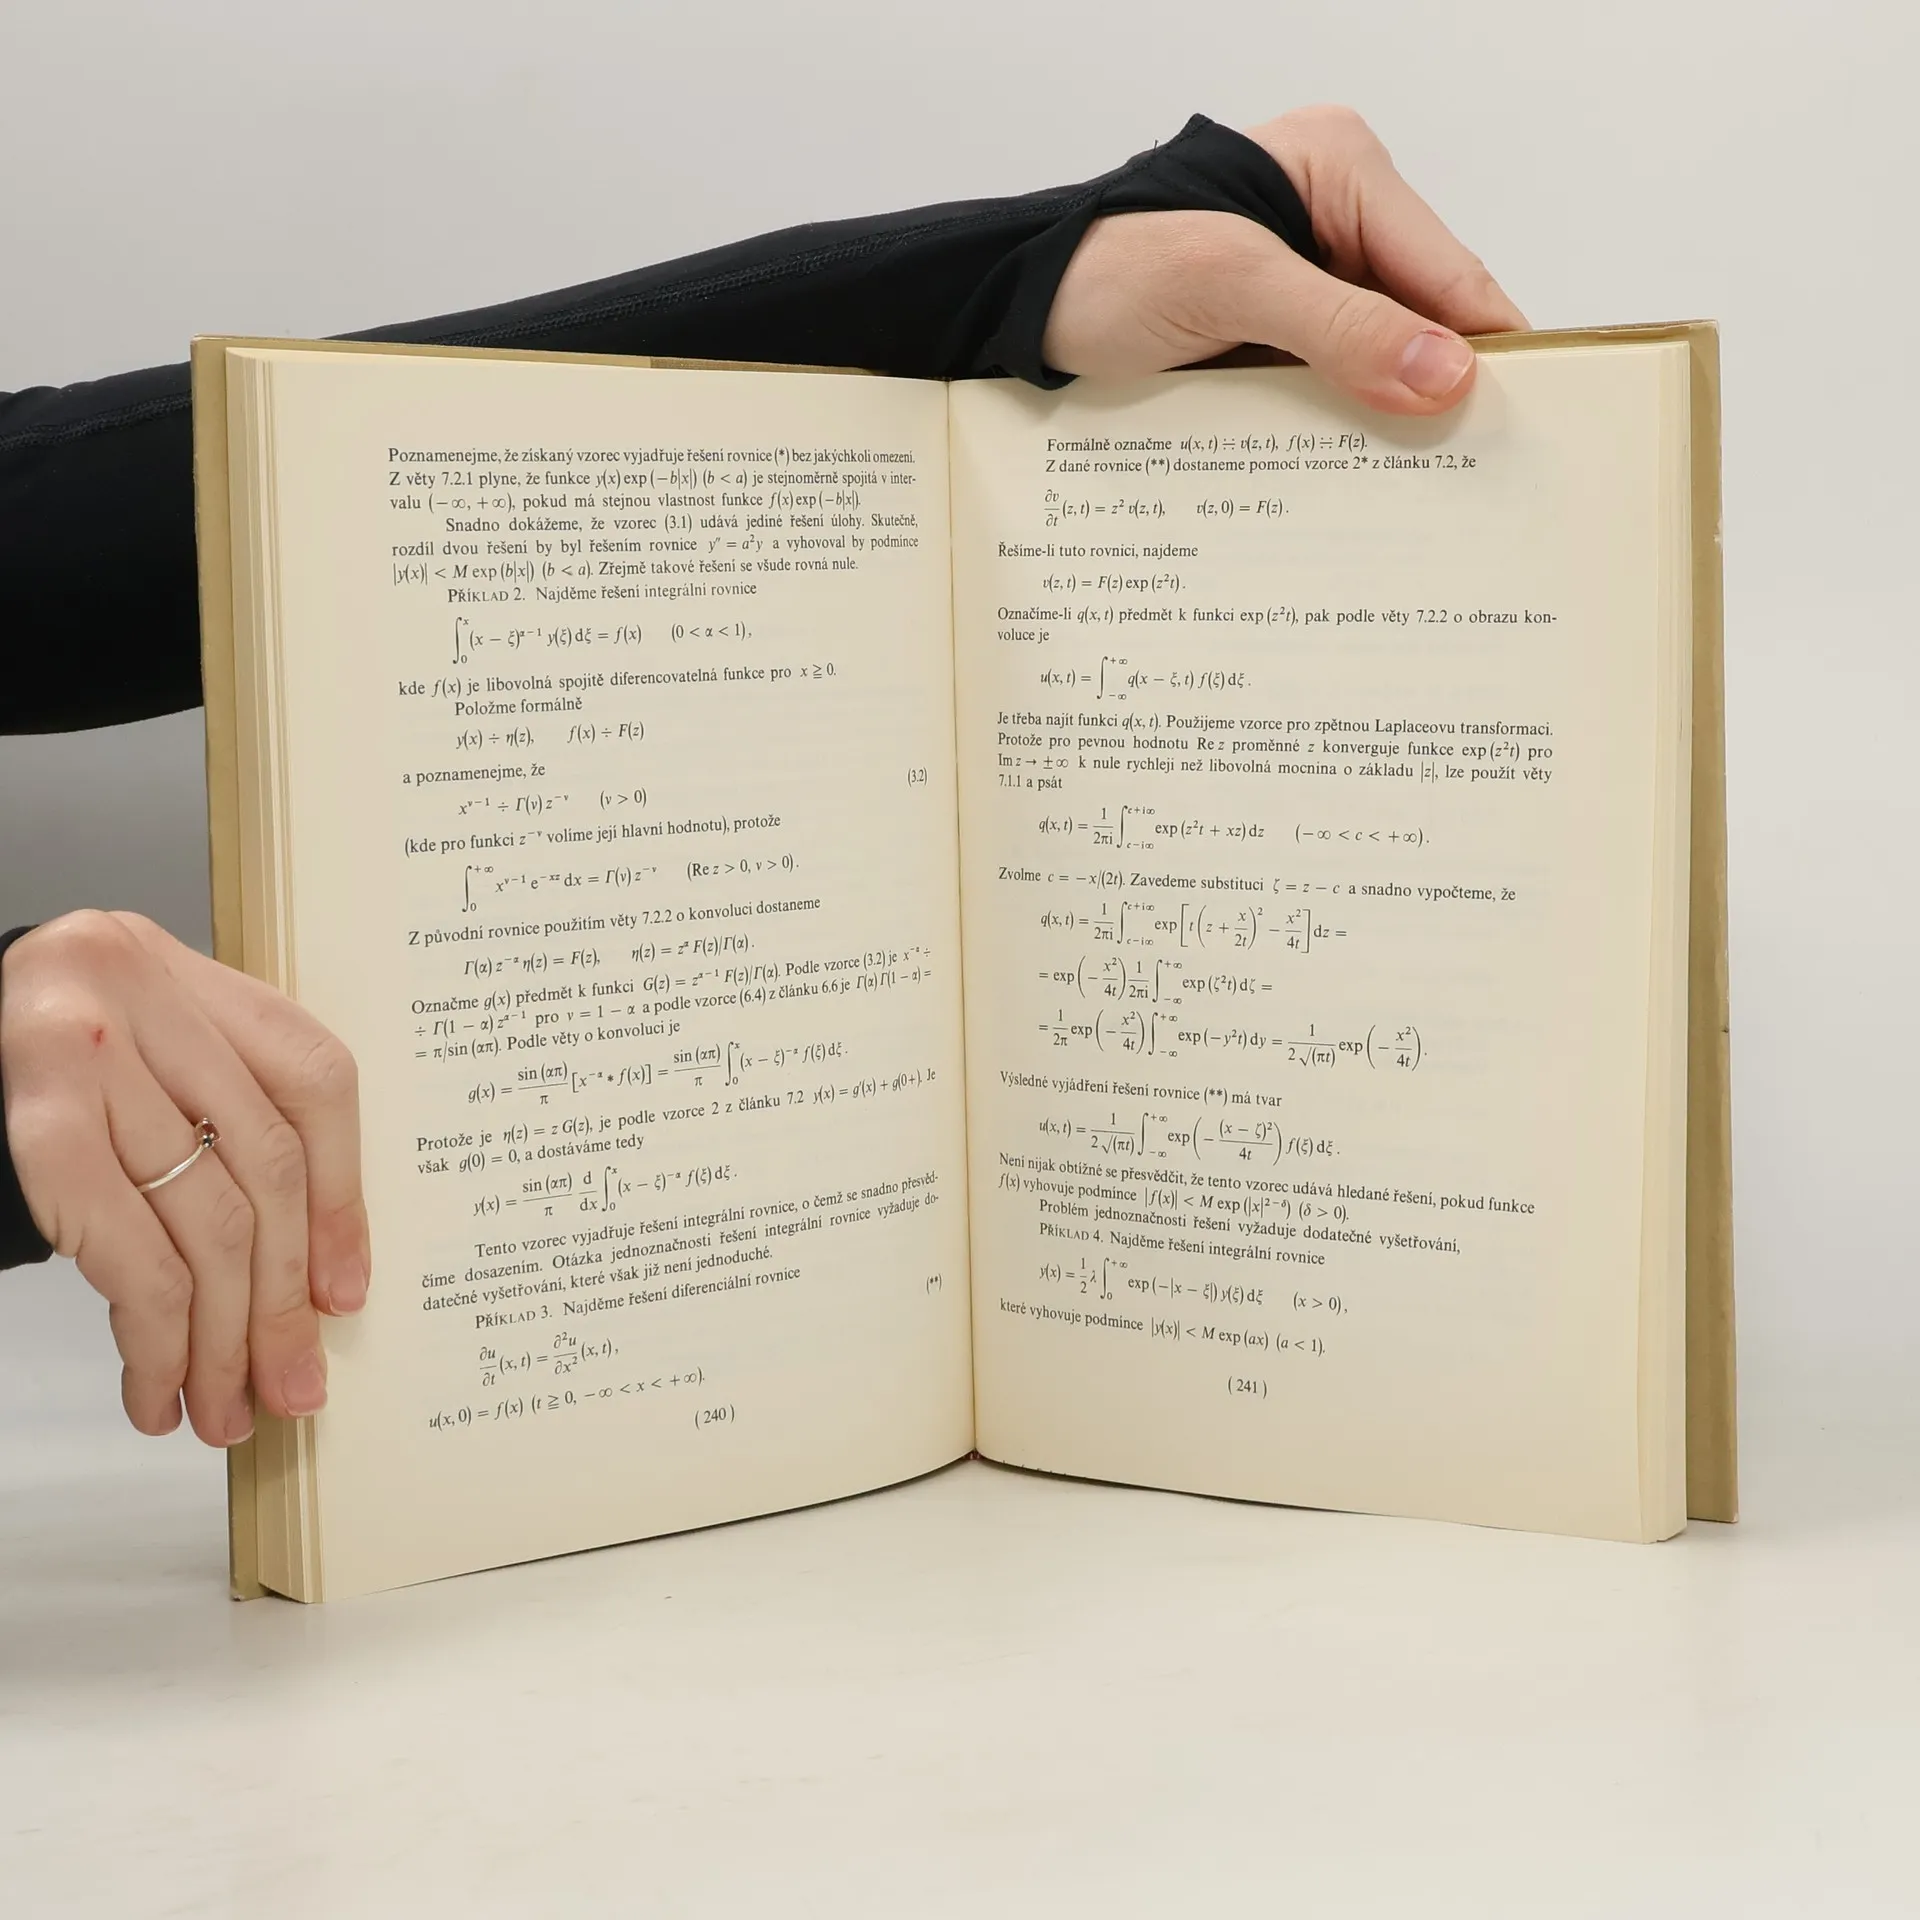 Poznamenejme, že získaný vzorec vyjadřuje řešení rovnice (*) bez jakýchkoli omezení.
Z věty 7.2.1 plyne, že funkce y(x) exp (−b|x|) (b < a) je stejnoměrně spojitá v inter-
valu (−∞, +∞), pokud má stejnou vlastnost funkce f(x) exp (−b|x|).
Snadno dokážeme, že vzorec (3.1) udává jediné řešení úlohy. Skutečně,
rozdíl dvou řešení by byl řešením rovnice y″ = a²y a vyhovoval by podmínce
|y(x)| < M exp (b|x|) (b < a). Zřejmě takové řešení se všude rovná nule.
PŘÍKLAD 2. Najděme řešení integrální rovnice
∫₀ˣ (x − ξ)^{α−1} y(ξ) dξ = f(x) (0 < α < 1),
kde f(x) je libovolná spojitě diferencovatelná funkce pro x ≧ 0.
Položme formálně
y(x) ÷ η(z), f(x) ÷ F(z)
a poznamenejme, že
x^{ν−1} ÷ Γ(ν) z^{−ν} (ν > 0) (3.2)
(kde pro funkci z^{−ν} volíme její hlavní hodnotu), protože
∫₀^{+∞} x^{ν−1} e^{−xz} dx = Γ(ν) z^{−ν} (Re z > 0, ν > 0).
Z původní rovnice použitím věty 7.2.2 o konvoluci dostaneme
Γ(α) z^{−α} η(z) = F(z), η(z) = z^α F(z)/Γ(α).
Označme g(x) předmět k funkci G(z) = z^{α−1} F(z)/Γ(α). Podle vzorce (3.2) je x^{−α} ÷
÷ Γ(1 − α) z^{α−1} pro ν = 1 − α a podle vzorce (6.4) z článku 6.6 je Γ(α) Γ(1 − α) =
= π/sin (απ). Podle věty o konvoluci je
g(x) = sin (απ)/π [x^{−α} * f(x)] = sin (απ)/π ∫₀ˣ (x − ξ)^{−α} f(ξ) dξ.
Protože je η(z) = z G(z), je podle vzorce 2 z článku 7.2 y(x) = g′(x) + g(0+). Je
však g(0) = 0, a dostáváme tedy
y(x) = sin (απ)/π d/dx ∫₀ˣ (x − ξ)^{−α} f(ξ) dξ.
Tento vzorec vyjadřuje řešení integrální rovnice, o čemž se snadno přesvěd-
číme dosazením. Otázka jednoznačnosti řešení integrální rovnice vyžaduje do-
datečné vyšetřování, které však již není jednoduché.
PŘÍKLAD 3. Najděme řešení diferenciální rovnice
∂u/∂t (x, t) = ∂²u/∂x² (x, t), (**)
u(x, 0) = f(x) (t ≧ 0, −∞ < x < +∞).
(240)
Formálně označme u(x, t) ∺ v(z, t), f(x) ∺ F(z).
Z dané rovnice (**) dostaneme pomocí vzorce 2* z článku 7.2, že
∂v/∂t (z, t) = z² v(z, t), v(z, 0) = F(z).
Řešíme-li tuto rovnici, najdeme
v(z, t) = F(z) exp (z²t).
Označíme-li q(x, t) předmět k funkci exp (z²t), pak podle věty 7.2.2 o obrazu kon-
voluce je
u(x, t) = ∫_{−∞}^{+∞} q(x − ξ, t) f(ξ) dξ.
Je třeba najít funkci q(x, t). Použijeme vzorce pro zpětnou Laplaceovu transformaci.
Protože pro pevnou hodnotu Re z proměnné z konverguje funkce exp (z²t) pro
Im z → ±∞ k nule rychleji než libovolná mocnina o základu |z|, lze použít věty
7.1.1 a psát
q(x, t) = 1/2πi ∫_{c−i∞}^{c+i∞} exp (z²t + xz) dz (−∞ < c < +∞).
Zvolme c = −x/(2t). Zavedeme substituci ζ = z − c a snadno vypočteme, že
q(x, t) = 1/2πi ∫_{c−i∞}^{c+i∞} exp [t (z + x/2t)² − x²/4t] dz =
= exp (− x²/4t) 1/2πi ∫_{−∞}^{+∞} exp (ζ²t) dζ =
= 1/2π exp (− x²/4t) ∫_{−∞}^{+∞} exp (−y²t) dy = 1/2√(πt) exp (− x²/4t).
Výsledné vyjádření řešení rovnice (**) má tvar
u(x, t) = 1/2√(πt) ∫_{−∞}^{+∞} exp (− (x − ζ)²/4t) f(ξ) dξ.
Není nijak obtížné se přesvědčit, že tento vzorec udává hledané řešení, pokud funkce
f(x) vyhovuje podmínce |f(x)| < M exp (|x|^{2−δ}) (δ > 0).
Problém jednoznačnosti řešení vyžaduje dodatečné vyšetřování,
PŘÍKLAD 4. Najděme řešení integrální rovnice
y(x) = 1/2 λ ∫₀^{+∞} exp (−|x − ξ|) y(ξ) dξ (x > 0),
které vyhovuje podmínce |y(x)| < M exp (ax) (a < 1).
(241)